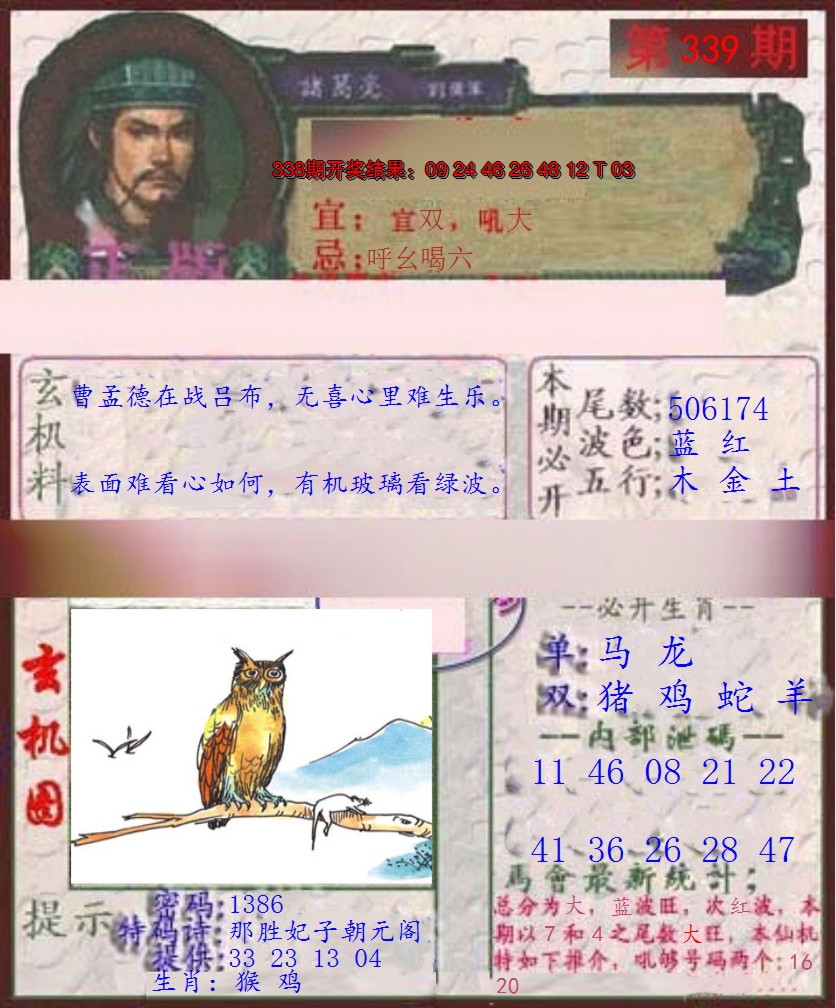 第 339 期
諸葛亮
338期开奖结果：09 24 46 26 48 12 T 03
宜：宜双，吼大
忌；呼幺喝六
正版
玄机料
曹孟德在战吕布，无喜心里难生乐。
表面难看心如何，有机玻璃看绿波。
本期必开
尾数；506174
波色；蓝 红
五行；木 金 土
玄机图
--必开生肖--
单：马 龙
双：猪 鸡 蛇 羊
--内部泄碼--
11 46 08 21 22
41 36 26 28 47
馬會最新統計；
总分为大，蓝波旺，次红波，本
期以7和4之尾数大旺，本仙机
特如下推介，吼够号码两个：16
20
提示
密码：1386
特码诗：那胜妃子朝元阁
提供：33 23 13 04
生肖：猴 鸡